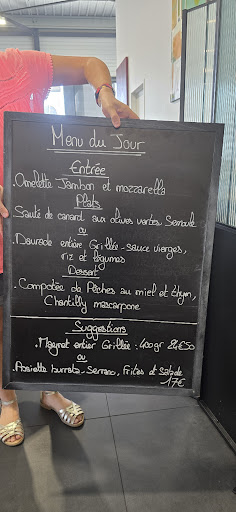 Menu du Jour
Entrée
. Omelette Jambon et mozzarella
Plats
. Sauté de canard aux olives vertes Semoule
ou
. Daurade entière Grillée - sauce vierges,
riz et légumes
Dessert
. Compotée de Pêches au miel et thym,
Chantilly mascarpone
Suggestions
. Magret entier Grillée : 400gr 24€50
ou
. Assiette burrata, Serrano, Frites et Salade
17€